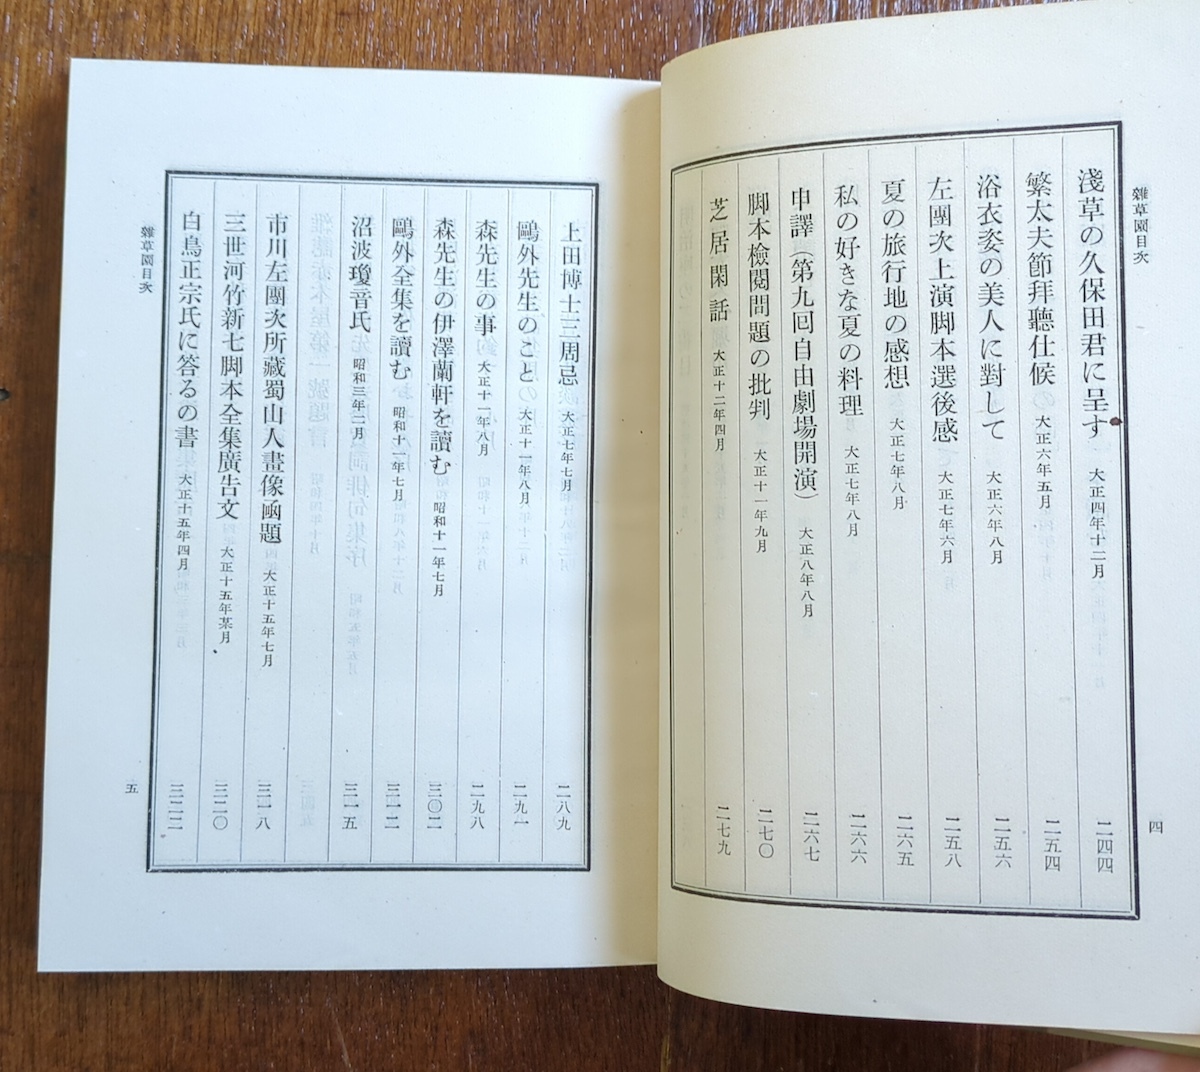 雜草園目次
淺草の久保田君に呈す 大正四年十二月 二四四
繁太夫節拜聽仕候 大正六年五月 二五四
浴衣姿の美人に對して 大正六年八月 二五六
左團次上演脚本選後感 大正七年六月 二五八
夏の旅行地の感想 大正七年八月 二六五
私の好きな夏の料理 大正七年八月 二六六
申譯(第九囘自由劇場開演) 大正八年八月 二六七
脚本檢閱問題の批判 大正十一年九月 二七〇
芝居閑話 大正十二年四月 二七九
四
上田博士三周忌 大正七年七月 二八九
鷗外先生のこと 大正十一年八月 二九一
森先生の事 大正十一年八月 二九八
森先生の伊澤蘭軒を讀む 昭和十一年七月 三〇二
鷗外全集を讀む 昭和十一年七月 三一二
沼波瓊音氏 昭和三年二月 三一五
市川左團次所藏蜀山人畫像凾題 大正十五年七月 三一八
三世河竹新七脚本全集廣告文 大正十五年某月 三二〇
白鳥正宗氏に答るの書 大正十五年四月 三二二
雜草園目次
五